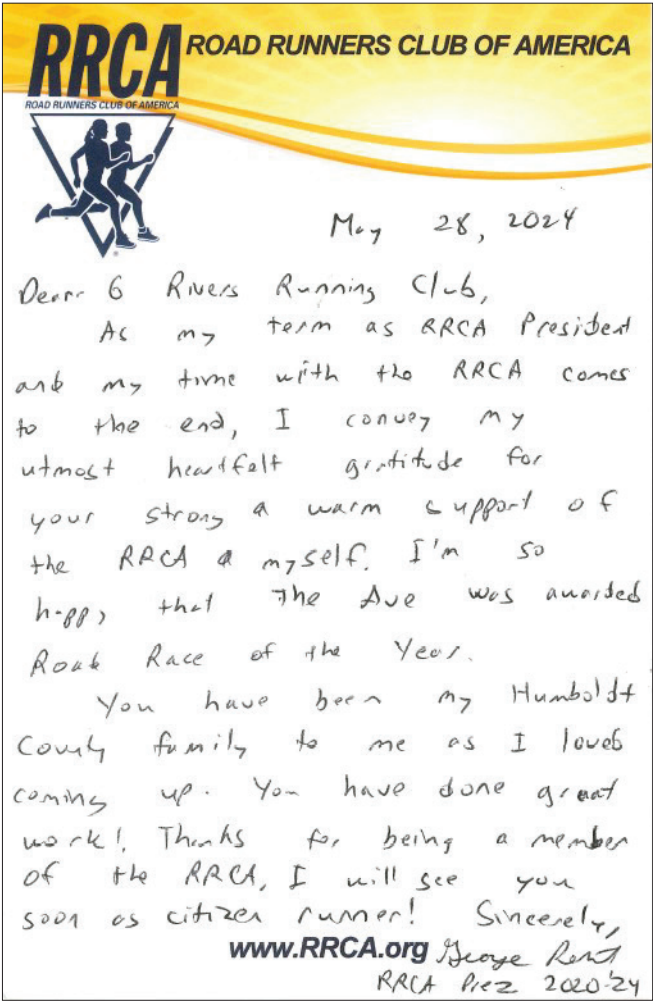 RRCA
ROAD RUNNERS CLUB OF AMERICA
ROAD RUNNERS CLUB OF AMERICA
®
May 28, 2024
Dear 6 Rivers Running Club,
As my term as RRCA President
and my time with the RRCA comes
to the end, I convey my
utmost heartfelt gratitude for
your strong & warm support of
the RRCA & myself. I'm so
happy that The Ave was awarded
Road Race of the Year.
You have been my Humboldt
County family to me as I loved
coming up. You have done great
work! Thanks for being a member
of the RRCA, I will see you
soon as citizen runner! Sincerely,
www.RRCA.org George
RRCA Prez 2020-24